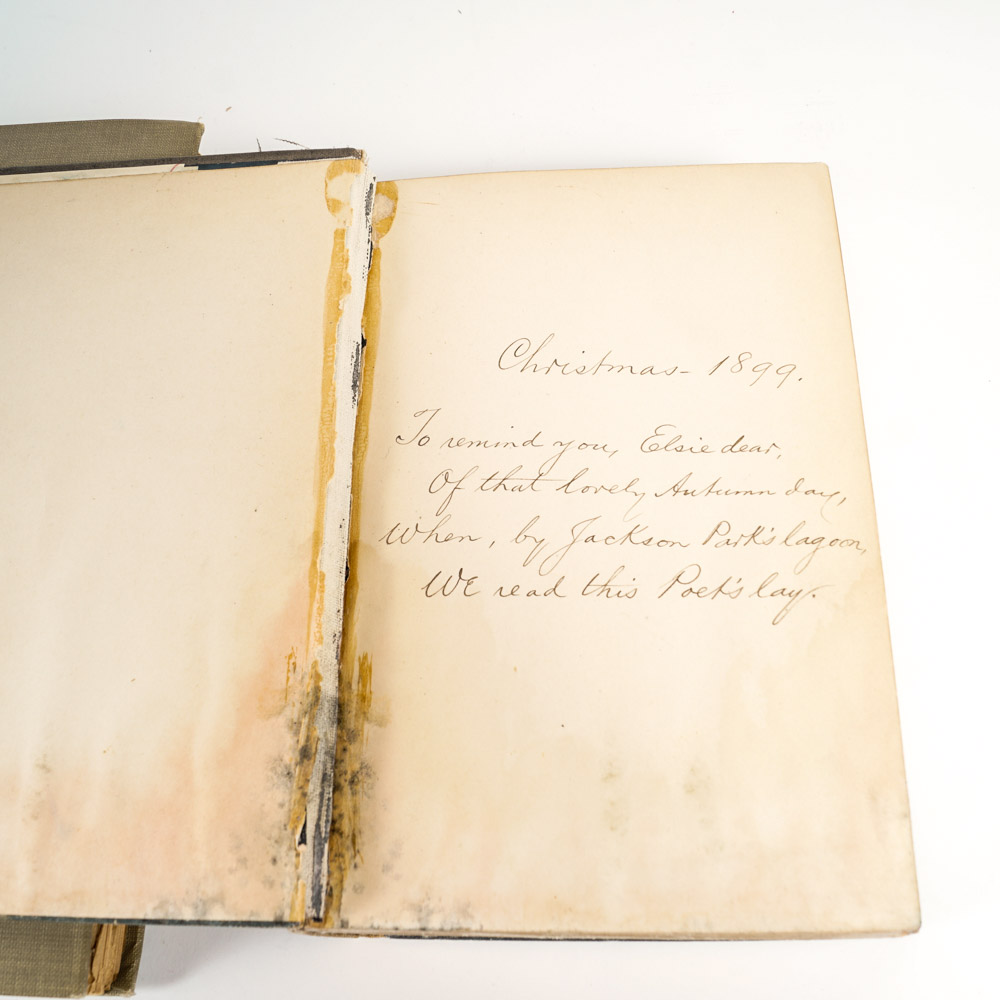 Christmas - 1899.
To remind you, Elsie dear,
Of that lovely Autumn day,
When, by Jackson Park's lagoon,
WE read this Poet's lay.